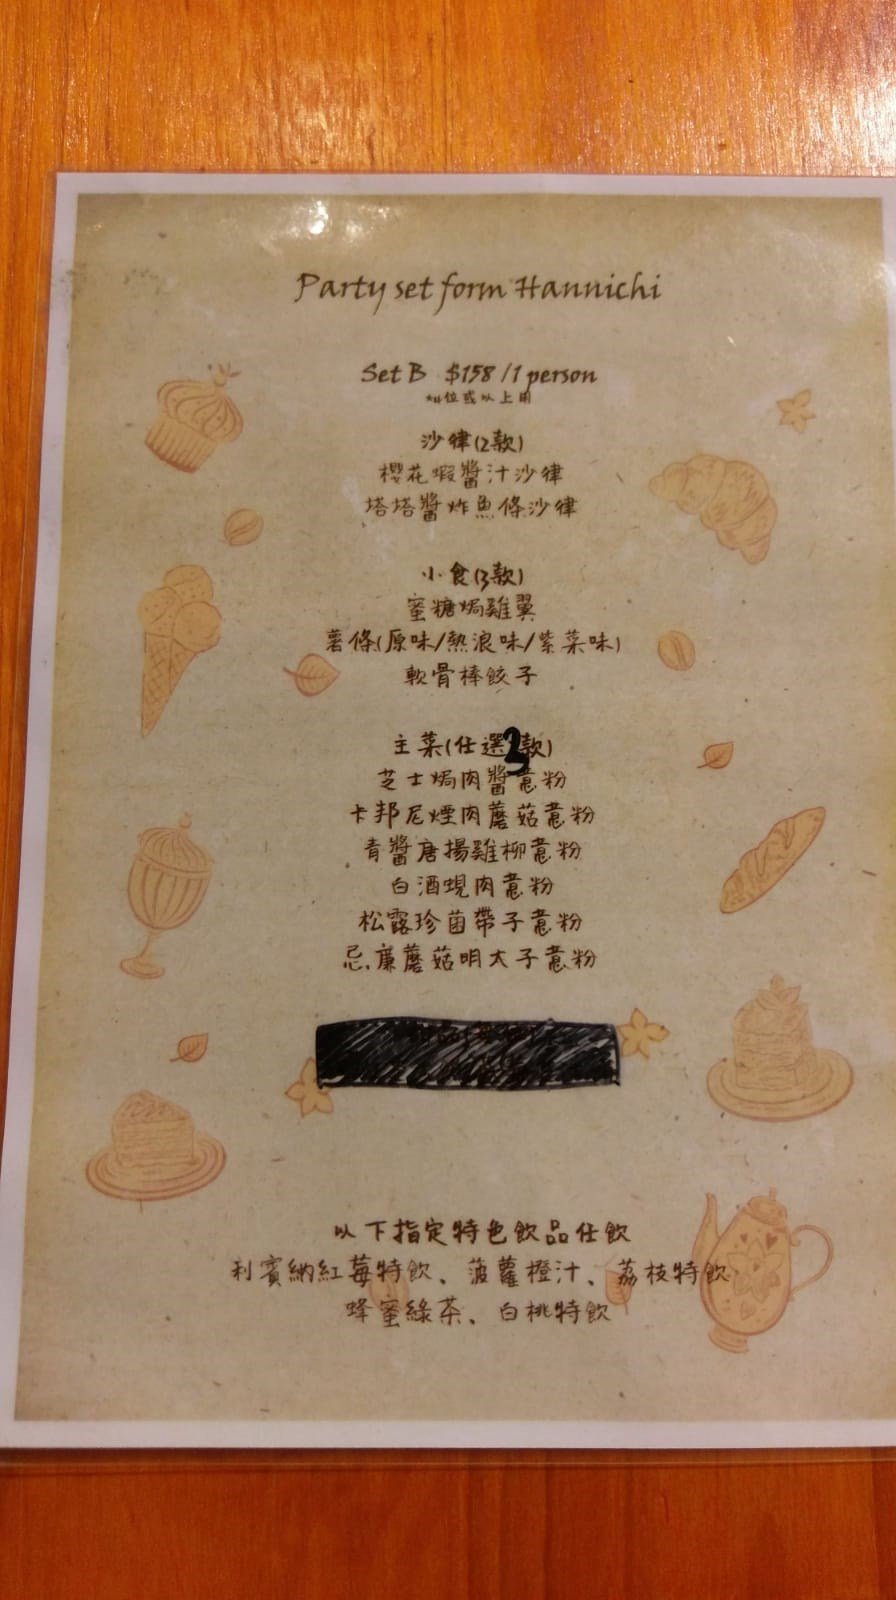 Party set form Hannichi
Set B $158 /1 person
*4位或以上用
沙律(2款)
櫻花蝦醬汁沙律
塔塔醬炸魚條沙律
小食(3款)
蜜糖焗雞翼
薯條(原味/熱浪味/紫菜味)
軟骨棒餃子
主菜(任選3款)
芝士焗肉醬意粉
卡邦尼煙肉蘑菇意粉
青醬唐揚雞柳意粉
白酒蜆肉意粉
松露珍菌帶子意粉
忌廉蘑菇明太子意粉
以下指定特色飲品任飲
利賓納紅莓特飲、菠蘿橙汁、荔枝特飲
蜂蜜綠茶、白桃特飲